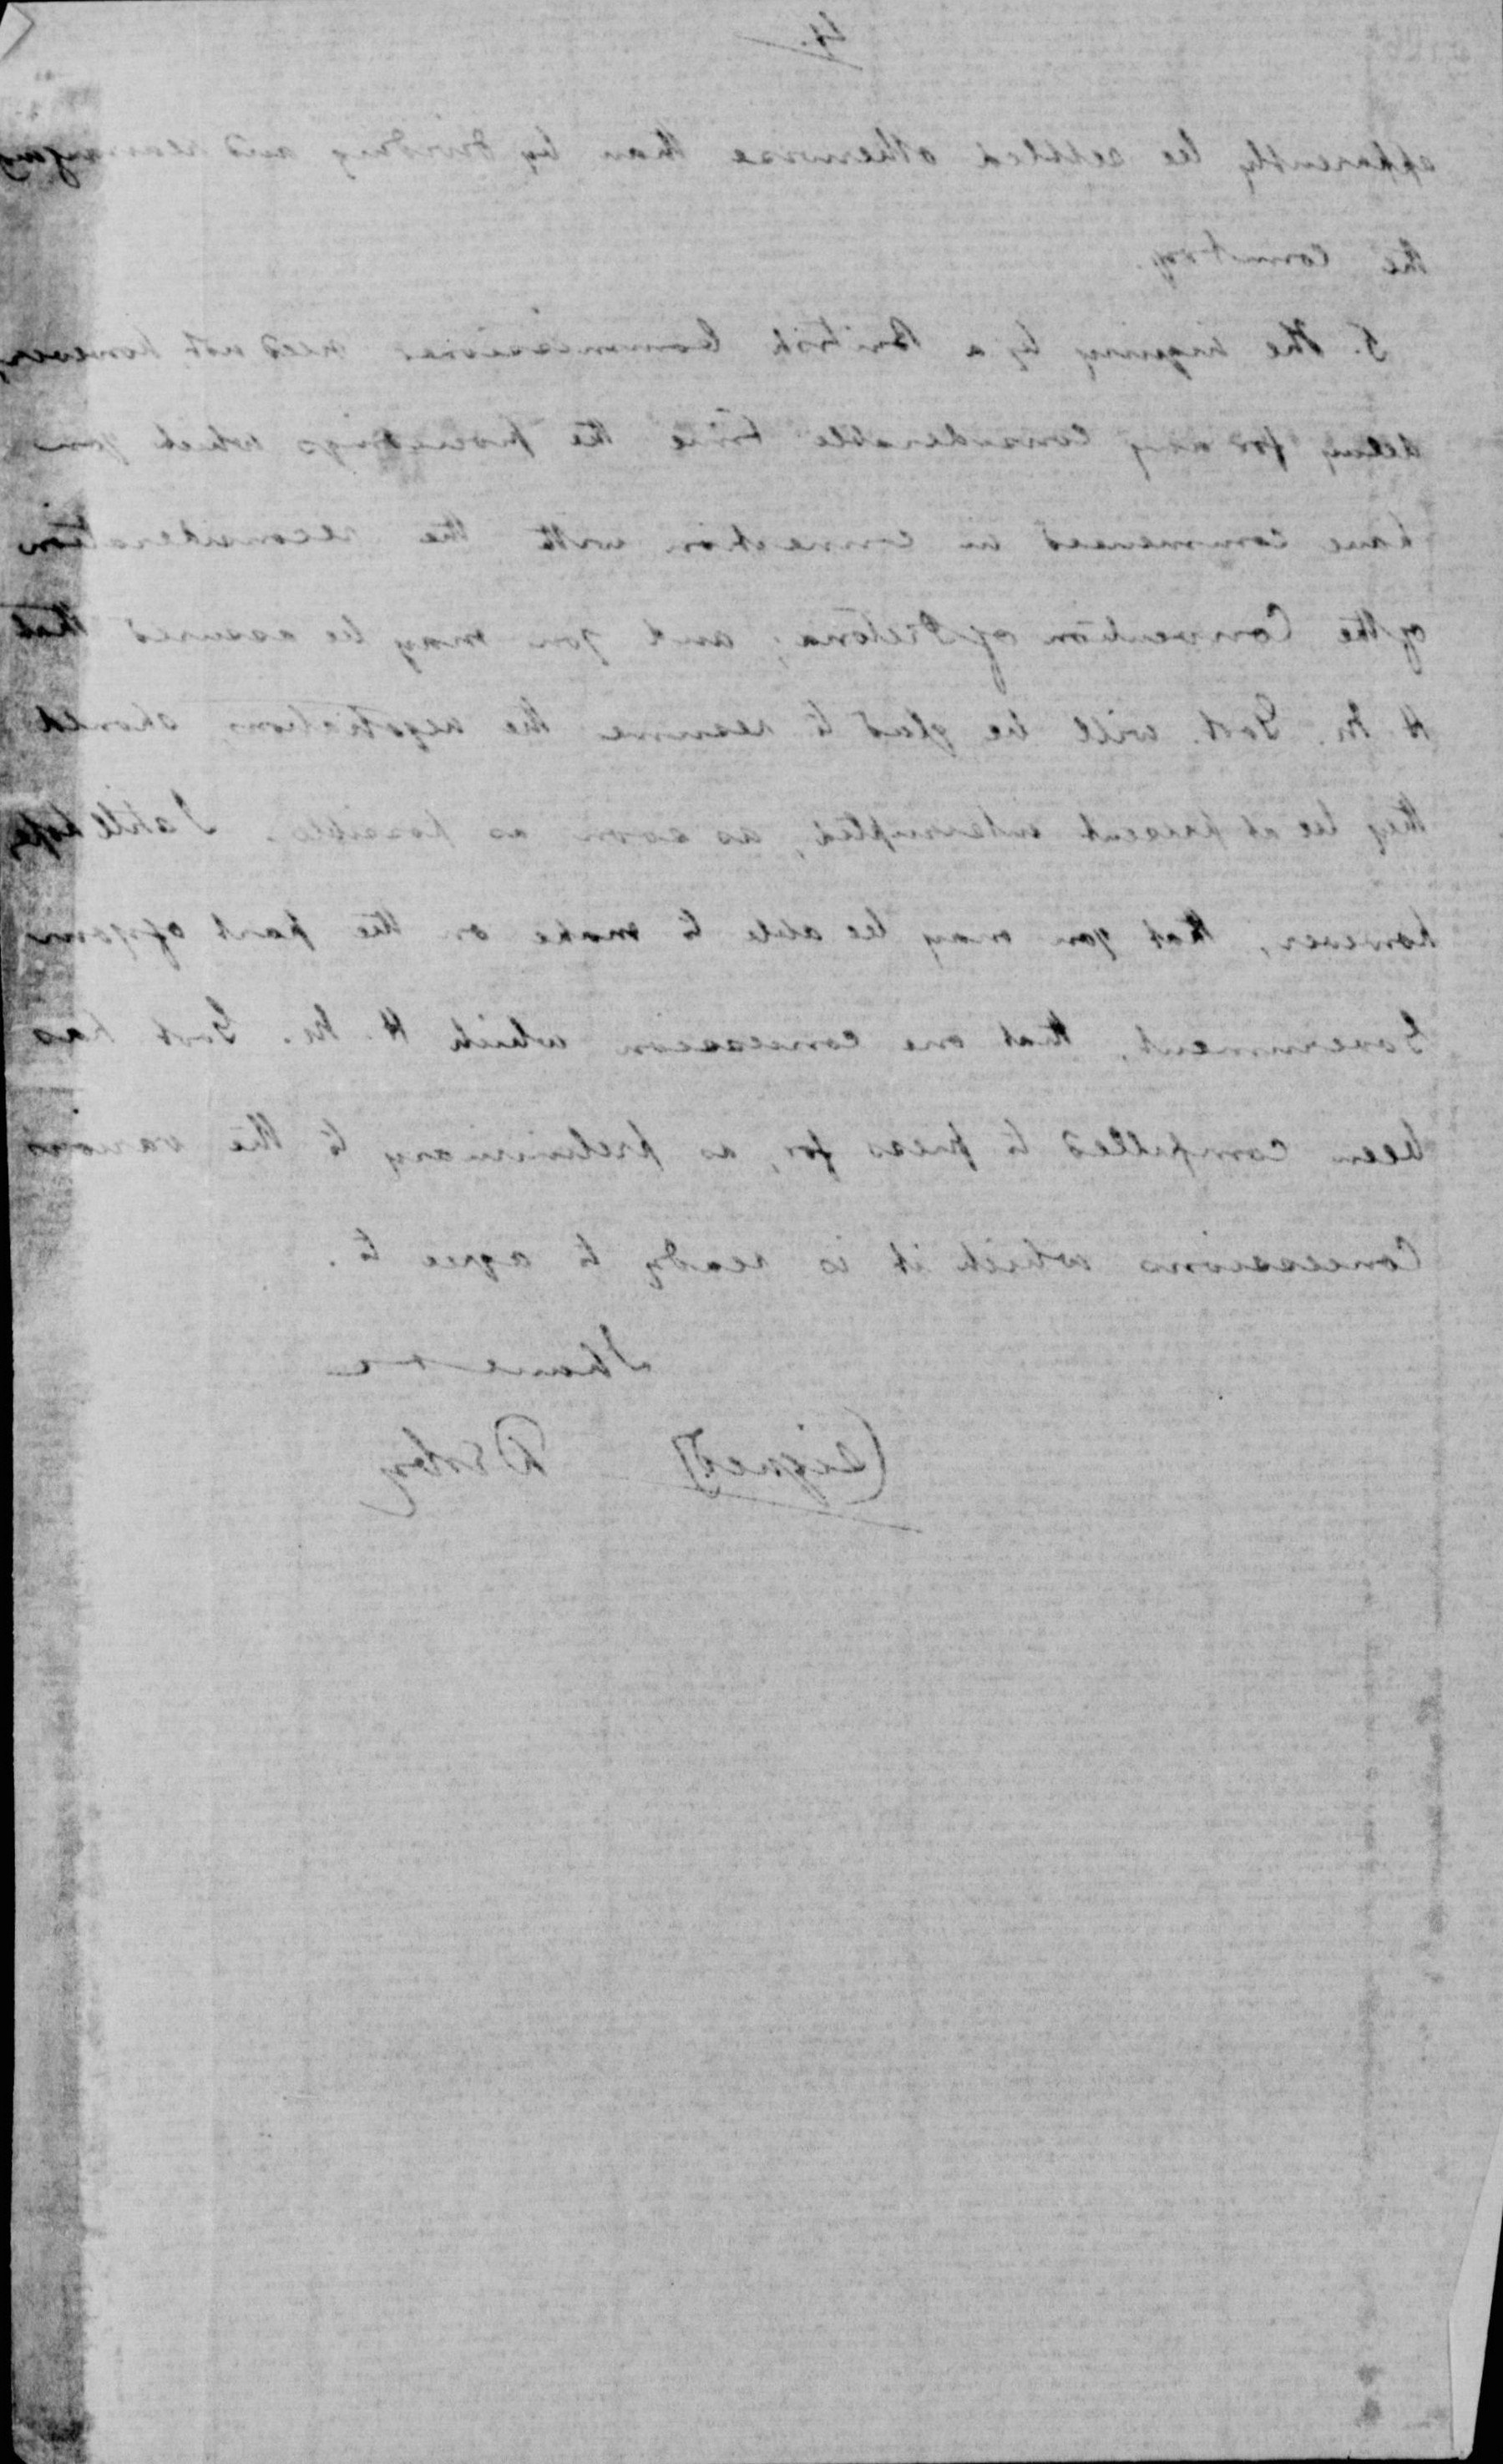 4.
apparently be settled otherwise than by dividing and rearranging
the country.
5. The inquiry by a British Commissioner need not however,
delay for any considerable time the proceedings which you
have commenced in connection with the reconsideration
of the Convention of Pretoria; and you may be assured that
H. M. Govt. will be glad to resume the negotiations should
they be at present interrupted, as soon as possible. I still hope,
however, that you may be able to make on the part of your
Government, that one concession which H. M. Govt has
been compelled to press for, as preliminary to the various
Concessions which it is ready to agree to.
I have
(signed) Derby